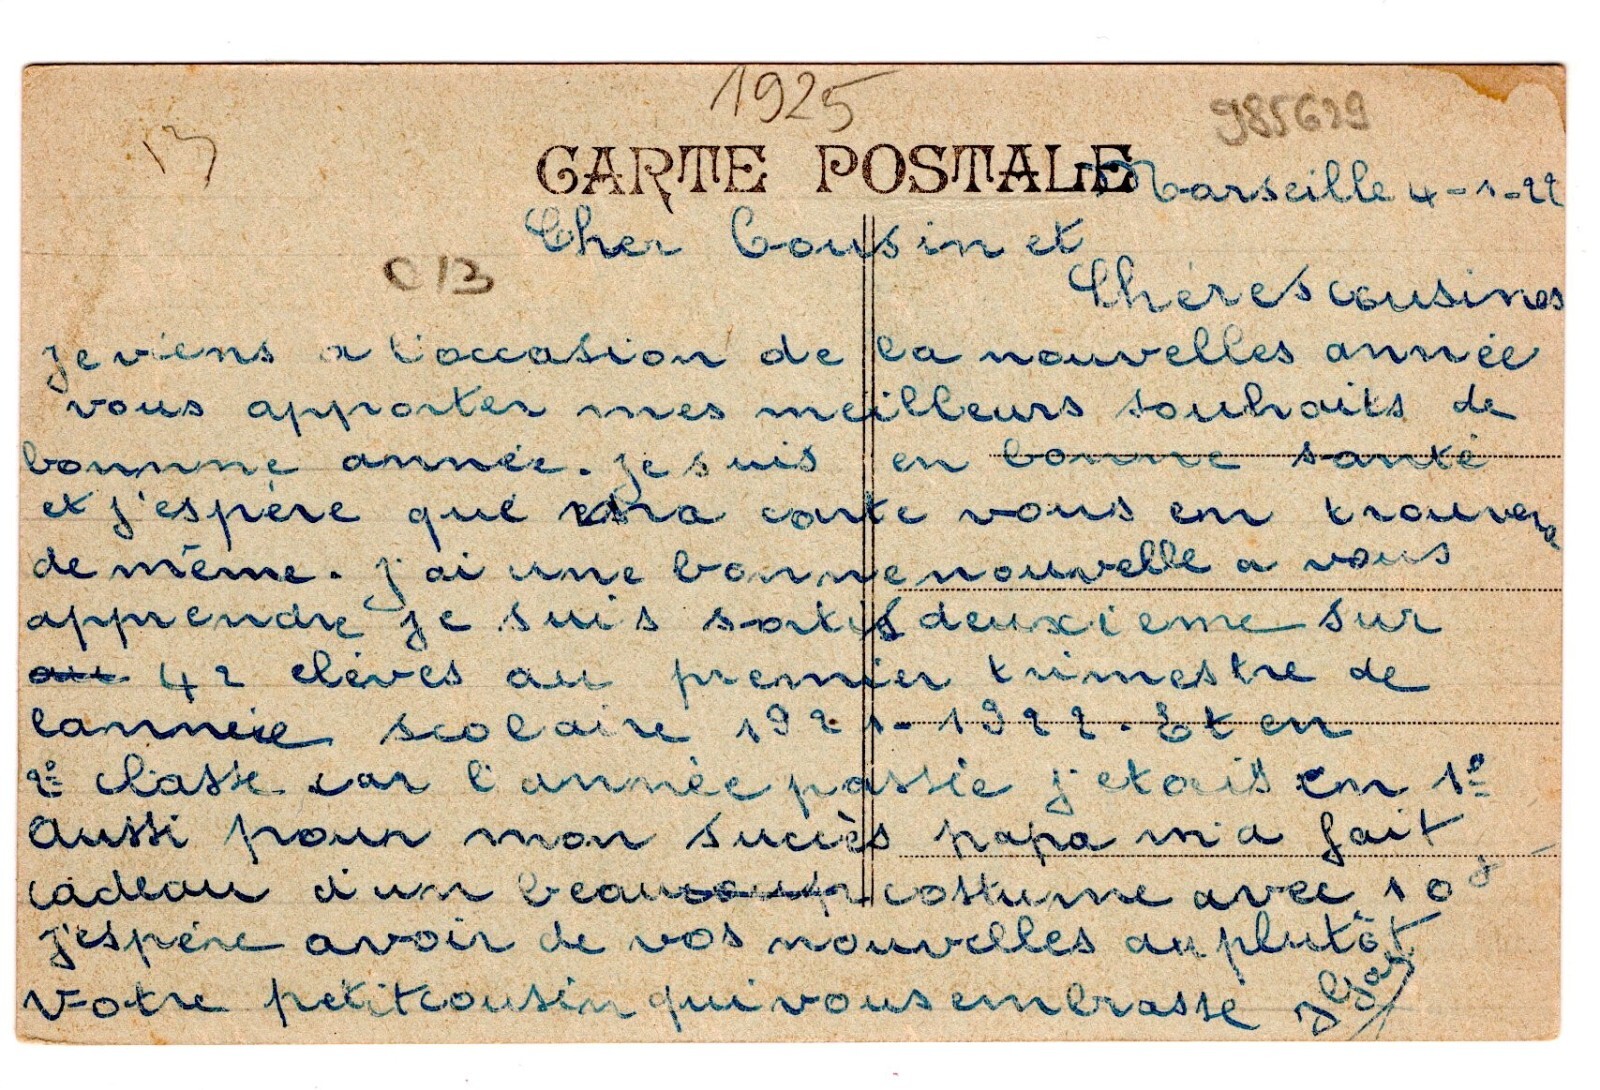 1925
985629
13
CARTE POSTALE
Marseille 4-1-22
Cher Cousin et
Chéres cousines
C13
Je viens a l'occasion de la nouvelles année
vous apporter mes meilleurs souhaits de
bonnne année. Je suis en bonne santé
et j'espére que ma carte vous en trouvera
de même. J'ai une bonne nouvelle a vous
apprendre je suis sortis deuxieme sur
au 42 eléves au premier trimestre de
lannéie scolaire 1921-1922. Et en
2e classe car l'année passée j'etais en 1e
Aussi pour mon succès papa m'a fait
cadeau d'un beau costume avec 10f
J'espére avoir de vos nouvelles au plutôt
Votre petit cousin qui vous embrasse